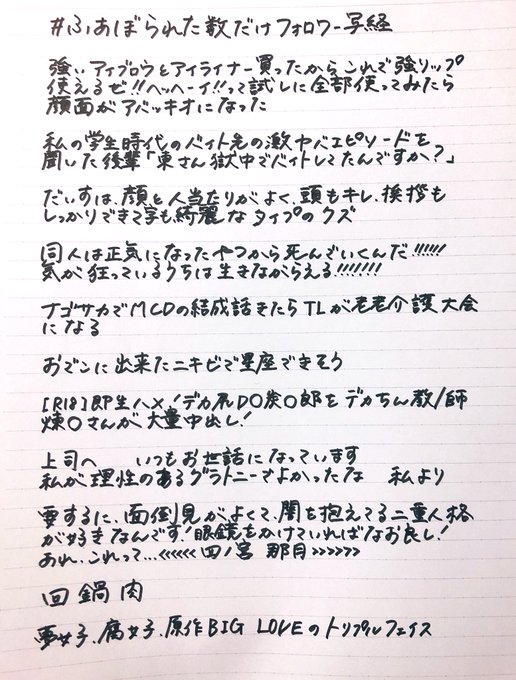 #ふぁぼられた数だけフォロワー写経
強いアイブロウとアイライナー買ったからこれで強リップ
使えるゼ!!ヘッヘーイ!!って試しに全部使ってみたら
顔面がアバッキオになった
私の学生時代のバイト先の激ヤバエピソードを
聞いた後輩「東さん獄中でバイトしてたんですか?」
だいすは、顔と人当たりがよく、頭もキレ、挨拶も
しっかりできて字も綺麗なタイプのクズ
同人は正気になったやつから死んでいくんだ!!!!!!
気が狂っているうちは生きながらえる!!!!!!!
ナゴサカでMCDの結成話きたらTLが老老介護大会
になる
おでこに出来たニキビで星座できそう
[R18]即生ハメ!デカ尻D〇炭〇郎をデカちん教/師
煉〇さんが大量中出し!
上司へ いつもお世話になっています
私が理性のあるグラトニーでよかったな 私より
要するに、面倒見がよくて、闇を抱えてる二重人格
が好きなんです!眼鏡をかけていればなお良し!
あれ、これって…<<<<<<四ノ宮 那月>>>>>>
回鍋肉
夢女子、腐女子、原作BIG LOVEのトリプルフェイス